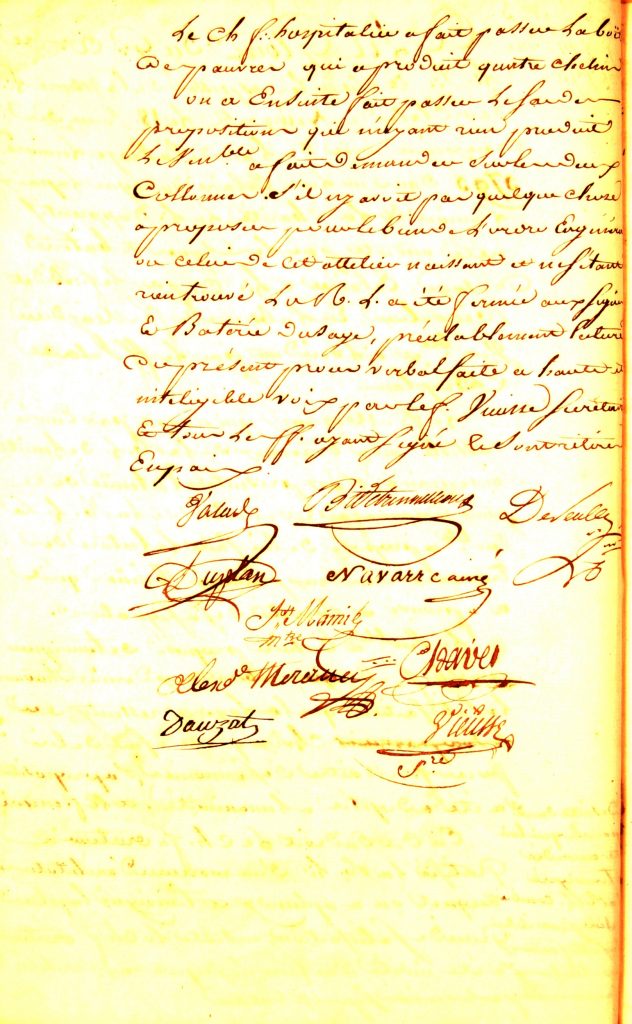 Le Ch f. hospitalier a fait passer la boë
de pauvres qui a produit quatre chelins
on a Ensuite fait passer le sac de
propositions qui n'ayant rien produit
le Ven.ble a fait demander sur les deux
Collonnes s'il n'y avoit pas quelque chose
à proposer pour le bien de L'ordre En général
ou celui de cet attelier naissant et ne s'étant
rien trouvé La R. L. a été fermée aux signe
& Baterie dusage, préalablement lecture
du présent procès verbal faite a haute et
inteligible voix par le f. Vieusse Secretaire
& tous Les ff. ayant signé se sont retirés
En paix.
Duplan Navarre ainé
Chaves
Dauzat Vieusse
S.re